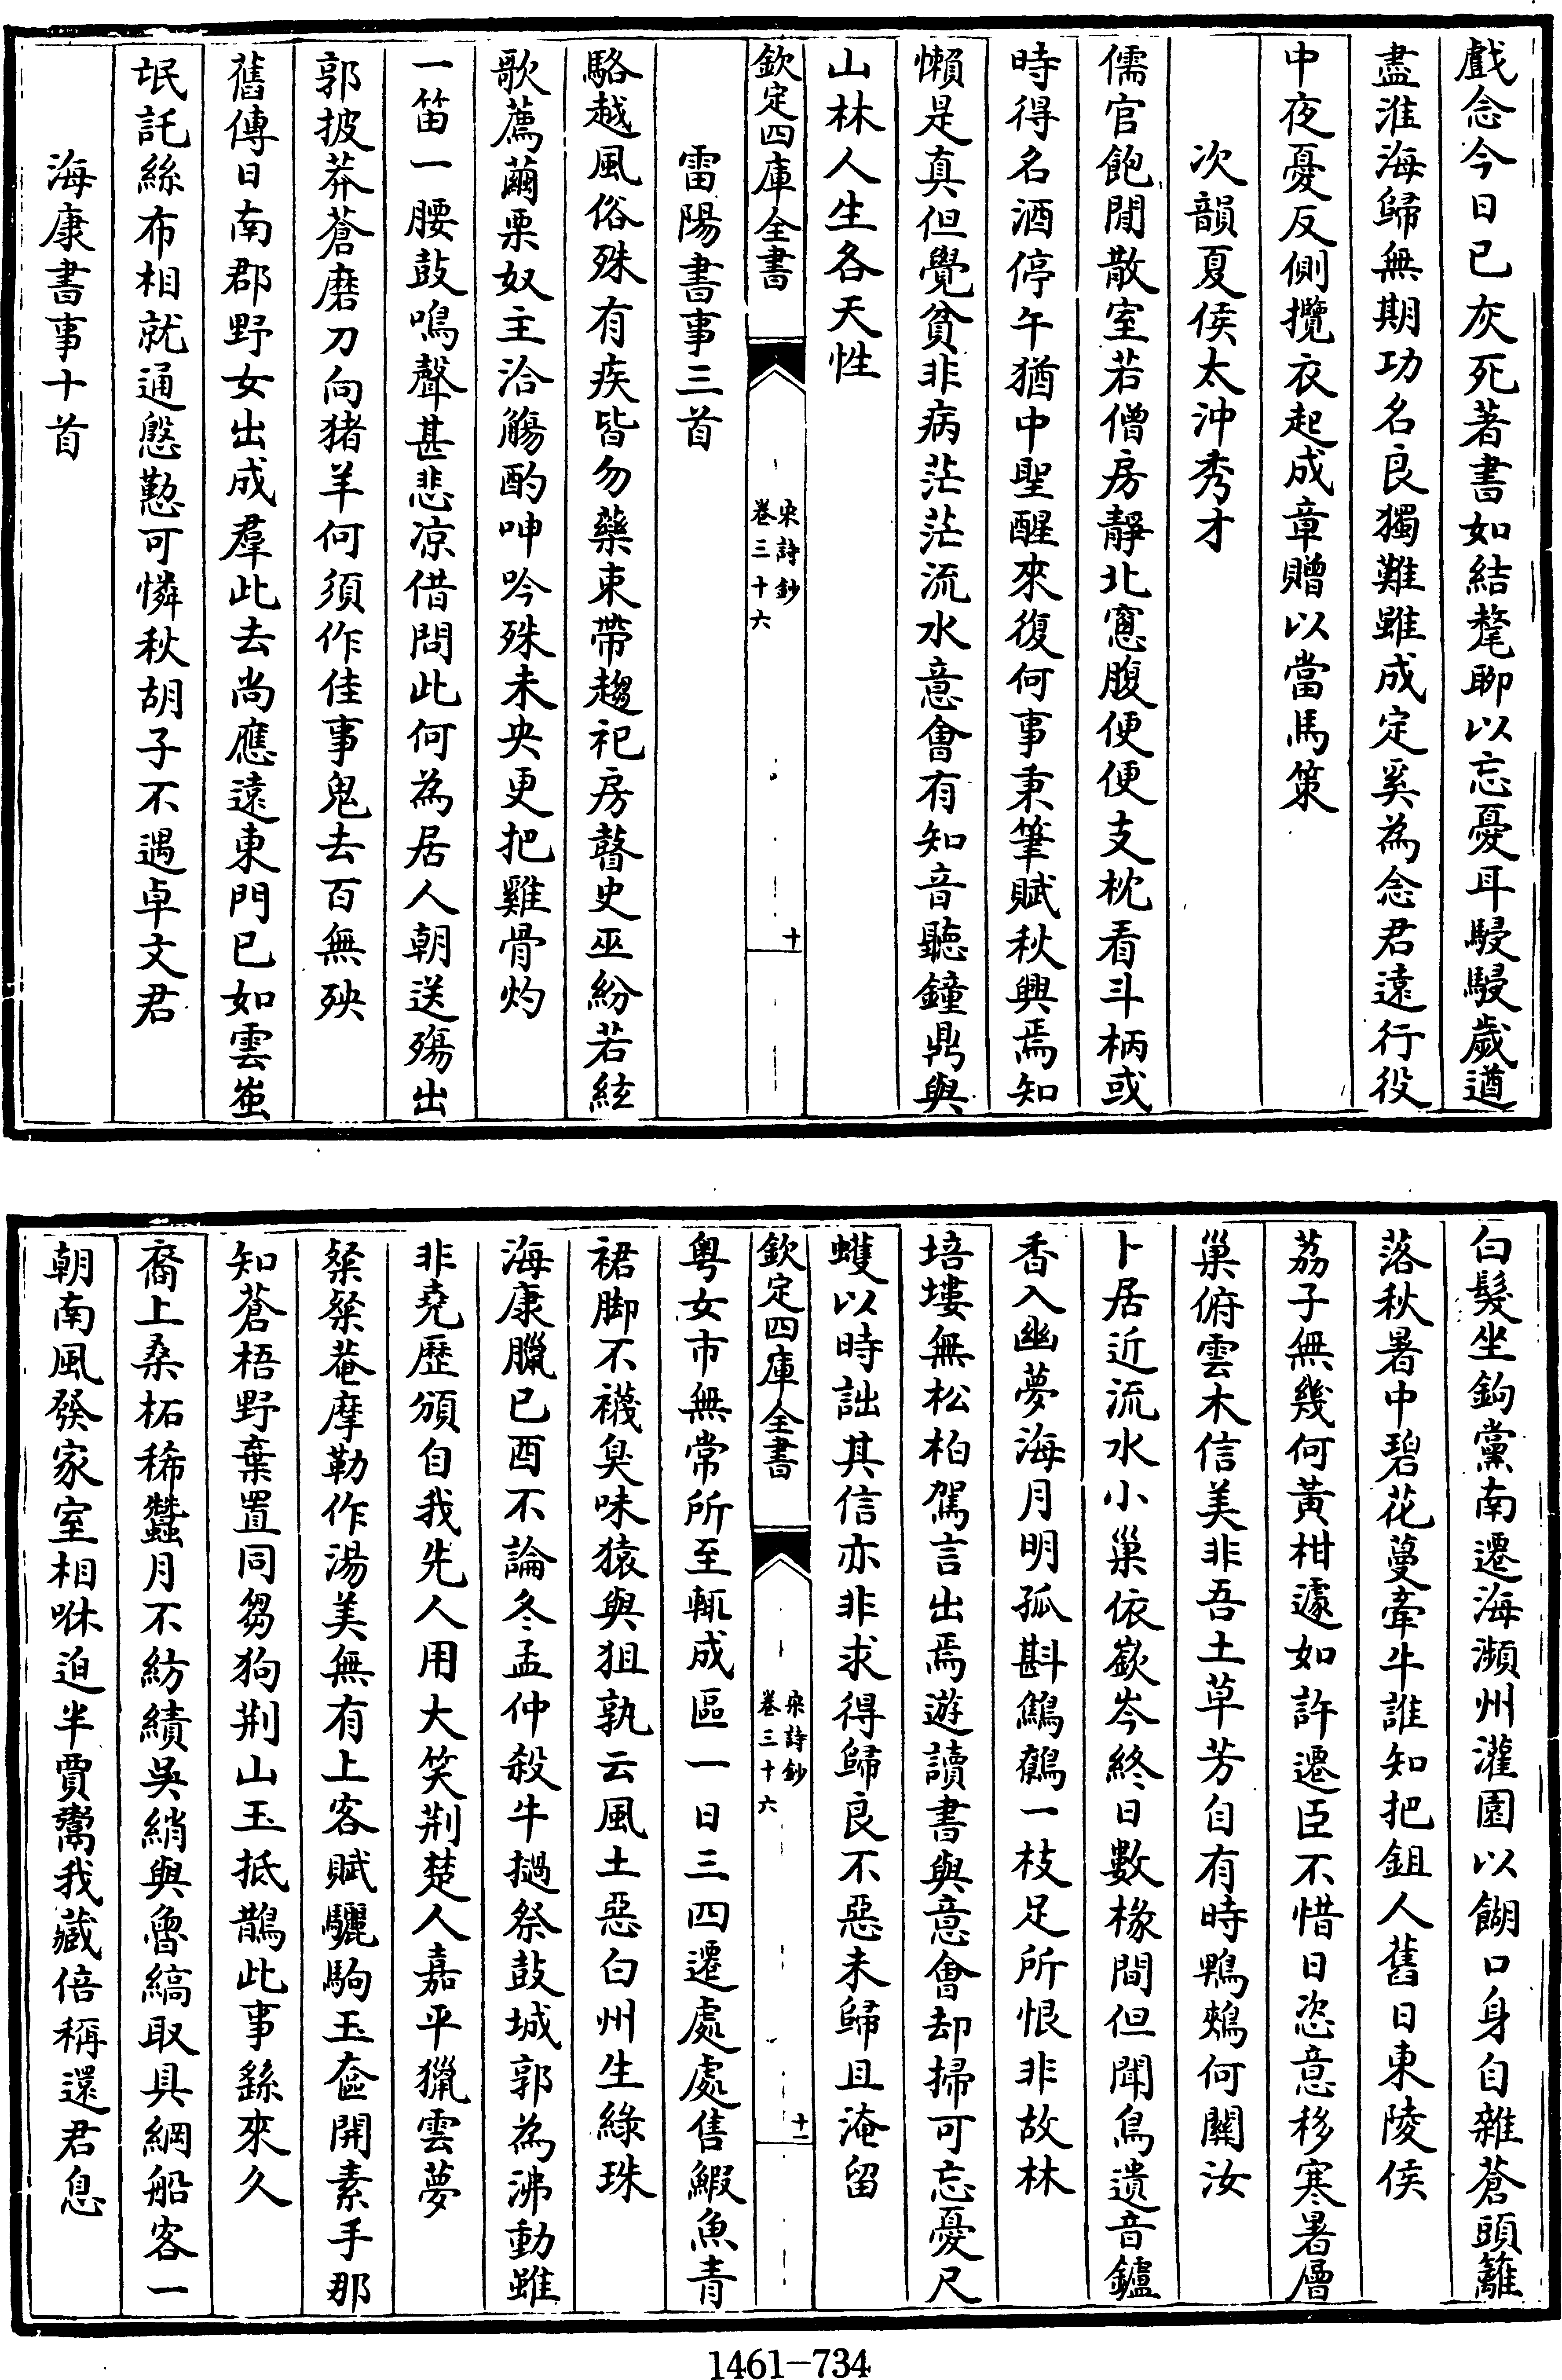 戲念今日已灰死著書如結氂聊以忘憂耳駸駸歲遒
盡淮海歸無期功名良獨難雖成定奚為念君遠行役
中夜憂反側攬衣起成章贈以當馬策
次韻夏侯太沖秀才
儒官飽閒散室若僧房靜北窻腹便便支枕看斗柄或
時得名酒停午猶中聖醒來復何事秉筆賦秋興焉知
懶是真但覺貧非病茫茫流水意會有知音聽鐘鼎與
山林人生各天性
欽定四庫全書
宋詩鈔
卷三十六
十
雷陽書事三首
駱越風俗殊有疾皆勿藥束帶趨祀房瞽史巫紛若絃
歌薦繭栗奴主洽觴酌呻吟殊未央更把雞骨灼
一笛一腰鼓鳴聲甚悲凉借問此何為居人朝送殤出
郭披莽蒼磨刀向猪羊何須作佳事鬼去百無殃
舊傳日南郡野女出成羣此去尚應遠東門已如雲蚩
氓託絲布相就通慇懃可憐秋胡子不遇卓文君
海康書事十首
白髮坐鉤黨南遷海瀕州灌園以餬口身自雜蒼頭籬
落秋暑中碧花蔓牽牛誰知把鉏人舊日東陵侯
荔子無幾何黃柑遽如許遷臣不惜日恣意移寒暑層
巢俯雲木信美非吾土草芳自有時鴨鵊何關汝
卜居近流水小巢依嶔岑終日數椽間但聞鳥遺音鑪
香入幽夢海月明孤斟鷦鷯一枝足所恨非故林
培塿無松柏駕言出焉遊讀書與意會却掃可忘憂尺
蠖以時詘其信亦非求得歸良不惡未歸且淹留
欽定四庫全書
宋詩鈔
卷三十六
十一
粵女市無常所至輒成區一日三四遷處處售鰕魚青
裙脚不襪臭味猿與狙孰云風土惡白州生綠珠
海康臘已酉不論冬孟仲殺牛撾祭鼓城郭為沸動雖
非堯歷頒自我先人用大笑荆楚人嘉平獵雲夢
粲粲菴摩勒作湯美無有上客賦驪駒玉奩開素手那
知蒼梧野棄置同芻狗荆山玉抵鵲此事繇來久
裔上桑柘稀蠶月不紡績吳綃與魯縞取具綱船客一
朝南風發家室相咻迫半賈鬻我藏倍稱還君息
1461—734